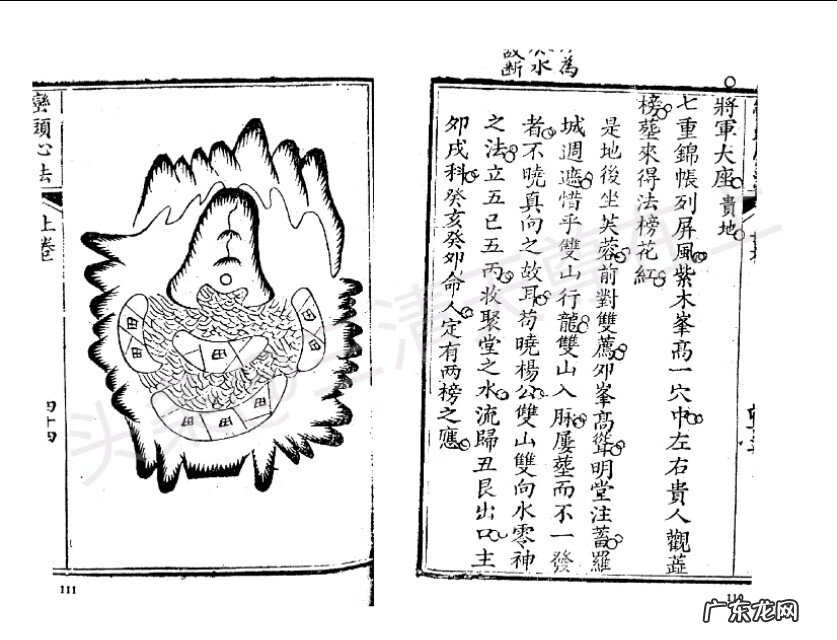 為
水
故断
將軍大座貴地
七重錦帳列屏風紫木峯高一穴中左右貴人觀蕋
榜塟來得法榜花紅
是地後坐芙蓉前對雙薦夘峯高聳明堂注蓄羅
城週遮惜乎雙山行龍雙山入脉屢塟而不一發
者不曉真向之故耳苟曉楊公雙山雙向水零神
之法立五巳五丙收聚堂之水流歸丑艮出口主
夘戌科癸亥癸夘命人定有两榜之應
110
田
田
田
田
田
田
田
田
田
巒頭心法
上卷
四十四
111
广东龙网